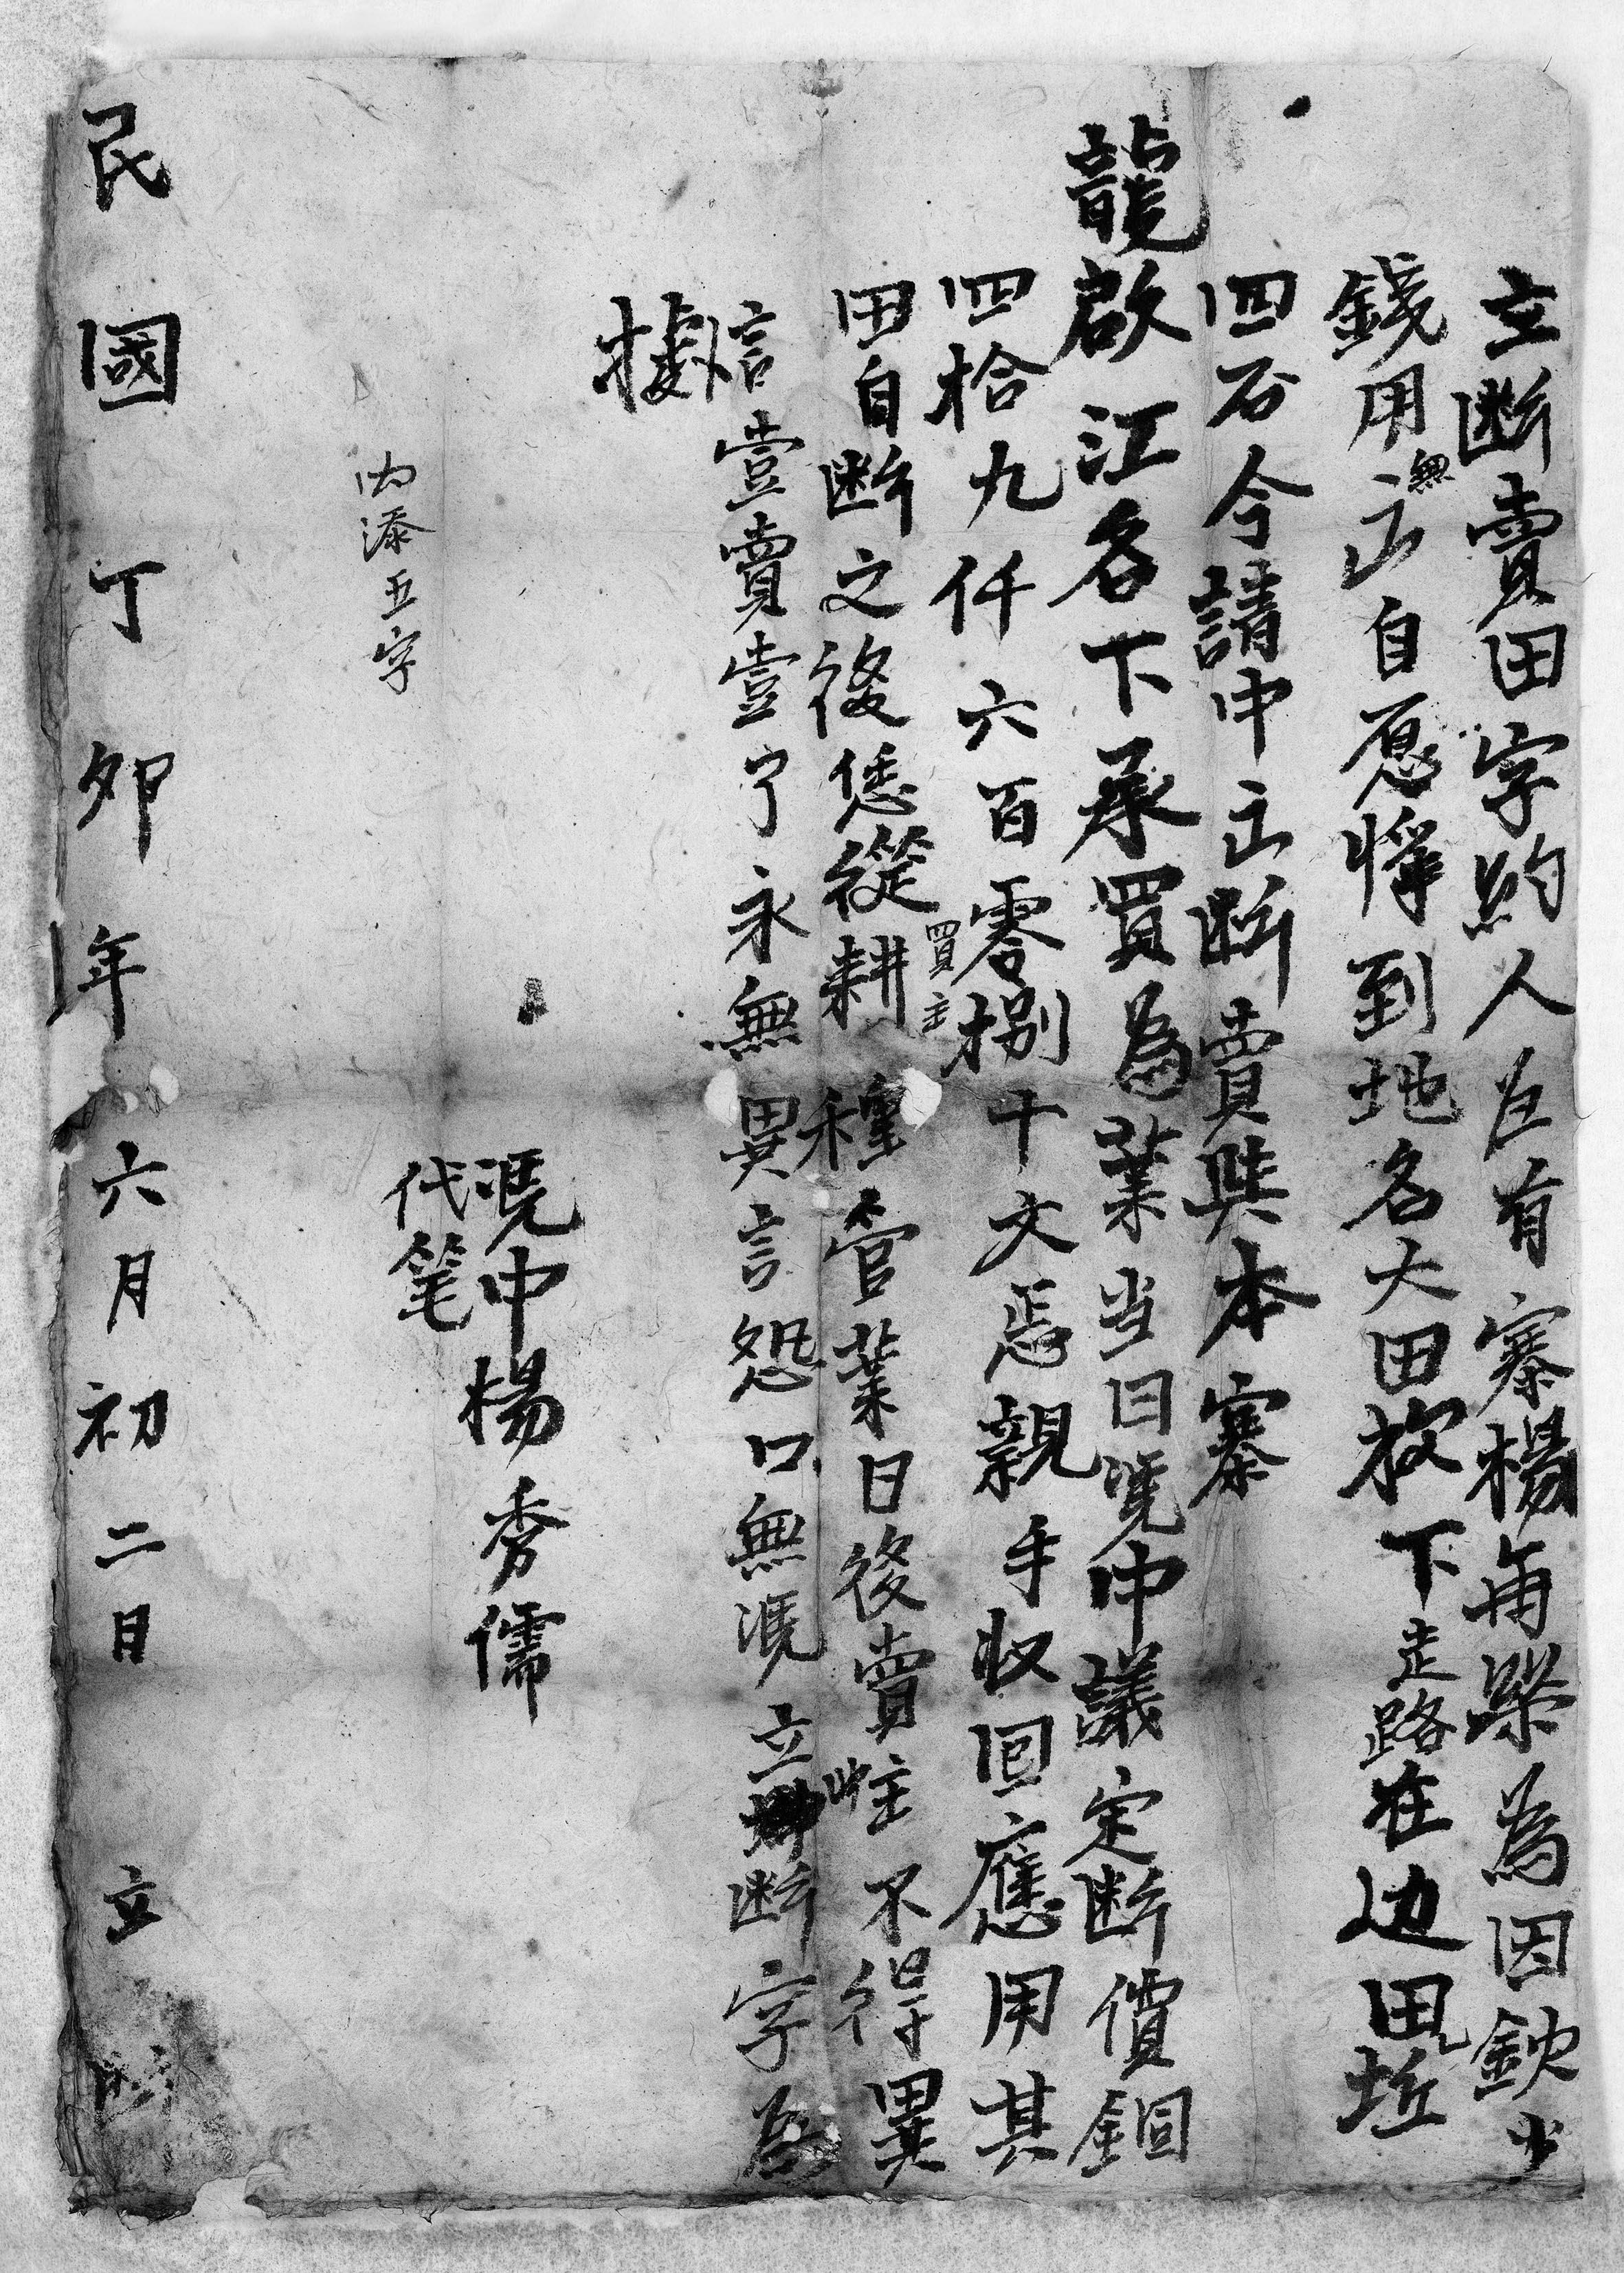 立断賣田字約人吂有寨楊再躋為因欽少
錢用無立自愿將到地名大田校下走路在边田坵
四石今請中立断賣與本寨
龍啟江名下承買為業当日凴中議定断價銅
四拾九仟六百零捌十文㤙親手收回應用其
田自断之後恁從買主耕種管業日後賣主不得異
言壹賣壹了永無異言怨口無凴立断字為
據
凴中楊秀儒
代笔
内添五字
民國丁卯年六月初二日立